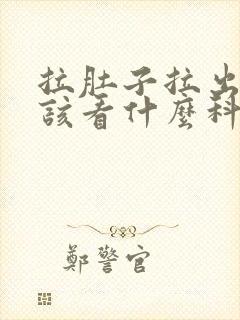 拉肚子拉出
該看什麼科
鄭警官